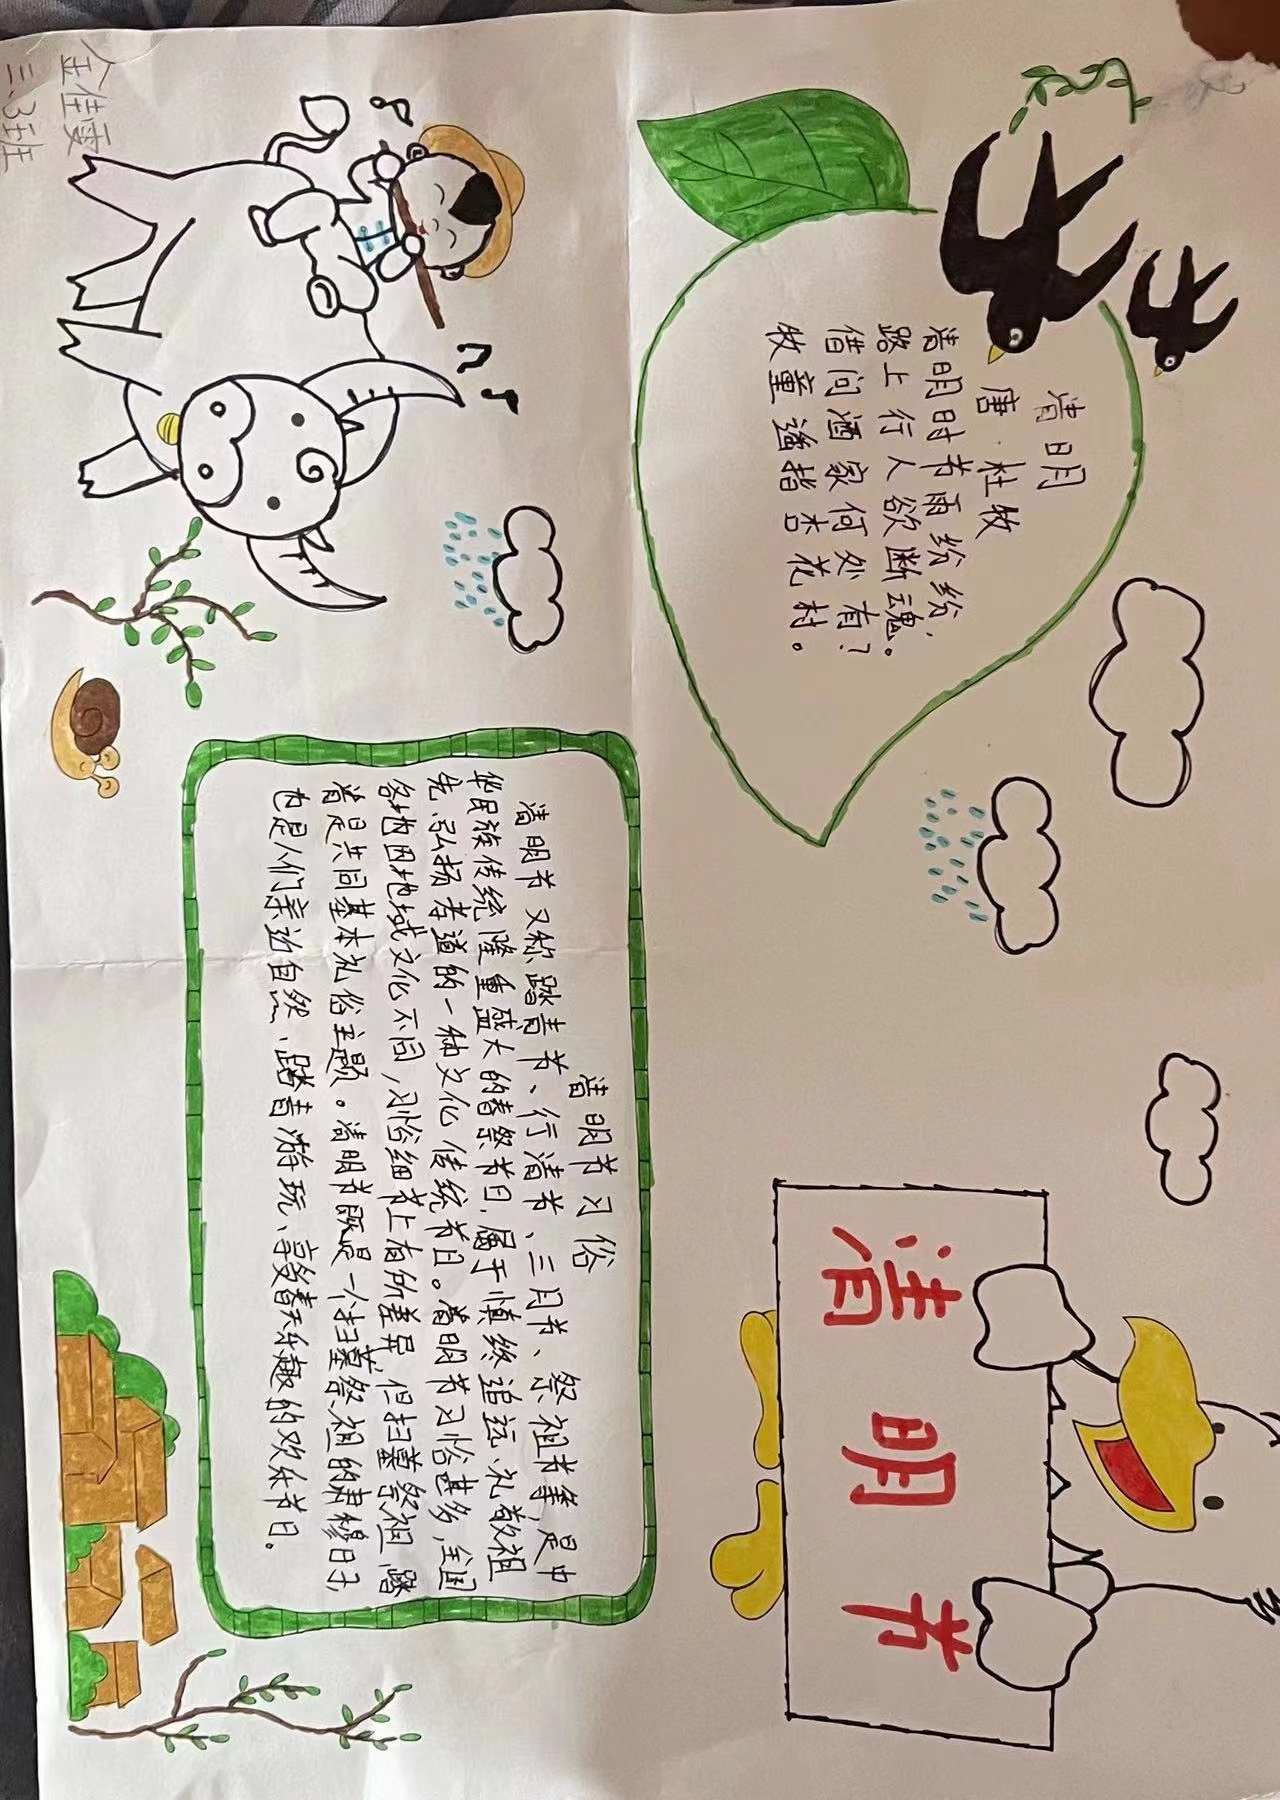 清明
唐·杜牧
清明时节雨纷纷，
路上行人欲断魂。
借问酒家何处有？
牧童遥指杏花村。
清明节
清明节习俗
清明节又称踏青节、行清节、三月节、祭祖节等，是中
华民族传统隆重盛大的春祭节日，属于慎终追远、礼敬祖
先、弘扬孝道的一种文化传统节日。清明节习俗甚多，全国
各地因地域文化不同，习俗细节上有所差异，但扫墓祭祖、踏
青是共同基本礼俗主题。清明节既是一个扫墓祭祖的肃穆日子，
也是人们亲近自然、踏青游玩、享受春天乐趣的欢乐节日。
三.3班
金佳雯